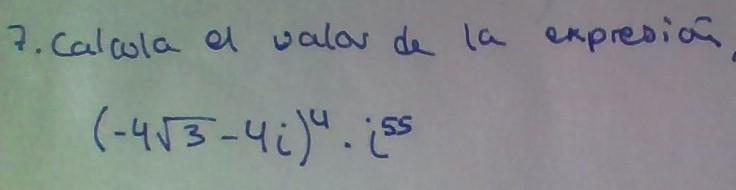 7. Calcula el valor de la expresión,
(-4√3-4i)⁴ · i⁵⁵